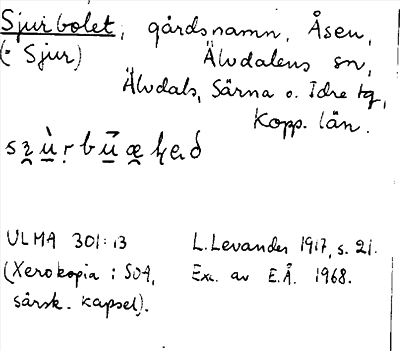 Sjurbolet, gårdsnamn, Åsen,
(: Sjur) Älvdalens sn,
Älvdals, Särna o. Idre tg,
Kopp. län.
ULMA 301:13 L. Levander 1917, s. 21.
(Xerokopia i SOA, Exc. av E.Å. 1968.
särsk. kapsel).